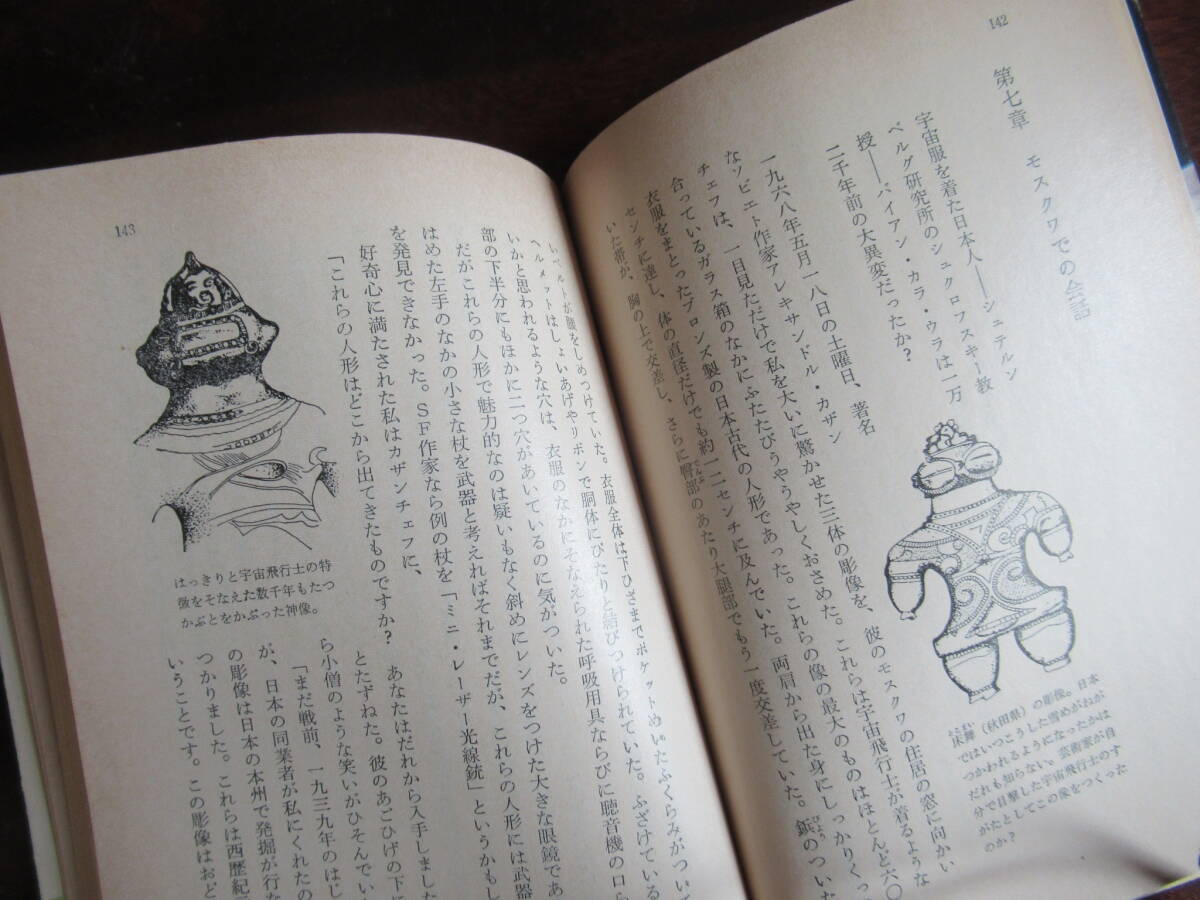 142
第七章　モスクワでの会話
宇宙服を着た日本人——シュテルン
ベルグ研究所のシュクロフスキー教
授——バイアン・カラ・ウラは一万
二千年前の大異変だったか?
一九六八年五月一八日の土曜日、著名
なソビエト作家アレキサンドル・カザン
チェフは、一目見ただけで私を大いに驚かせた三体の彫像を、彼のモスクワの住居の窓に向かい
合っているガラス箱のなかにふたたびうやうやしくおさめた。これらは宇宙飛行士が着るような
衣服をまとったブロンズ製の日本古代の人形であった。これらの像の最大のものはほとんど六〇
センチに達し、体の直径だけでも約一二センチに及んでいた。両肩から出た身にしっかりくっ
いた帯が、胸の上で交差し、さらに臀部のあたり大腿部でもう一度交差していた。鋲のついた
床舞(秋田県)の彫像。日本
ではいつこうした雪めがねが
つかわれるようになったかは
だれも知らない。芸術家が自
分で目撃した宇宙飛行士のす
がたとしてこの像をつくった
のか?
143
いベルトが腰をしめつけていた。衣服全体は下ひざまでポケットめいたふくらみがついて
ヘルメットはしょいあげやリボンで胴体にぴたりと結びつけられていた。ふざけている
いかと思われるような穴は、衣服のなかにそなえられた呼吸用具ならびに聴音機の口ら
部の下半分にもほかに二つ穴があいているのに気がついた。
だがこれらの人形で魅力的なのは疑いもなく斜めにレンズをつけた大きな眼鏡であ
はめた左手のなかの小さな杖を武器と考えればそれまでだが、これらの人形には武器
を発見できなかった。SF作家なら例の杖を「ミニ・レーザー光線銃」というかもし
好奇心に満たされた私はカザンチェフに、
「これらの人形はどこから出てきたものですか?
あなたはだれから入手しました
とたずねた。彼のあごひげの下に
ら小僧のような笑いがひそんでい
「まだ戦前、一九三九年のはじ
が、日本の同業者が私にくれたの
の彫像は日本の本州で発掘が行な
つかりました。これらは西歴紀
いうことです。この彫像はおど
はっきりと宇宙飛行士の特
徴をそなえた数千年もたつ
かぶとをかぶった神像。